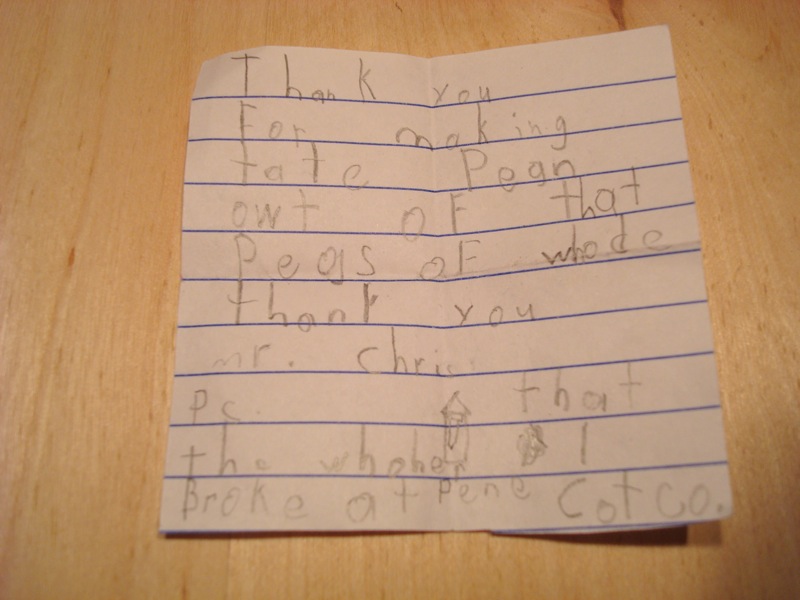 Thank you
For making
tate Pegn
owt of that
Pegs of whode
thank you
mr. Chris.
Ps. that
the whoher I
Broke at Pene Cotco.